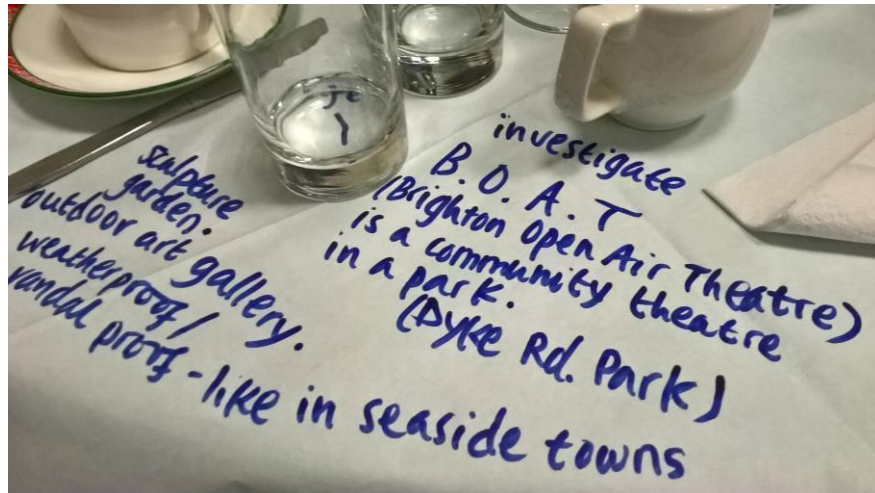 sculpture
garden.
outdoor art gallery.
weatherproof/
vandal proof - like in seaside towns
investigate
B. O. A. T
(Brighton Open Air Theatre)
is a community theatre
in a park.
(Dyke Rd. Park)